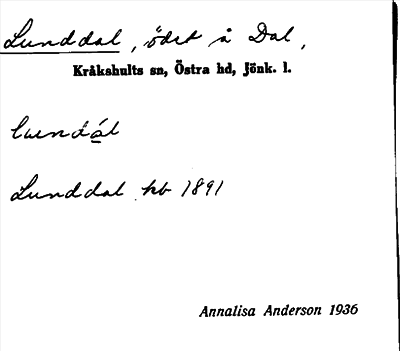 Lunddal, ödet å Dal,
Kråkshults sn, Östra hd, Jönk. l.
Lunddal kb 1891
Annalisa Anderson 1936